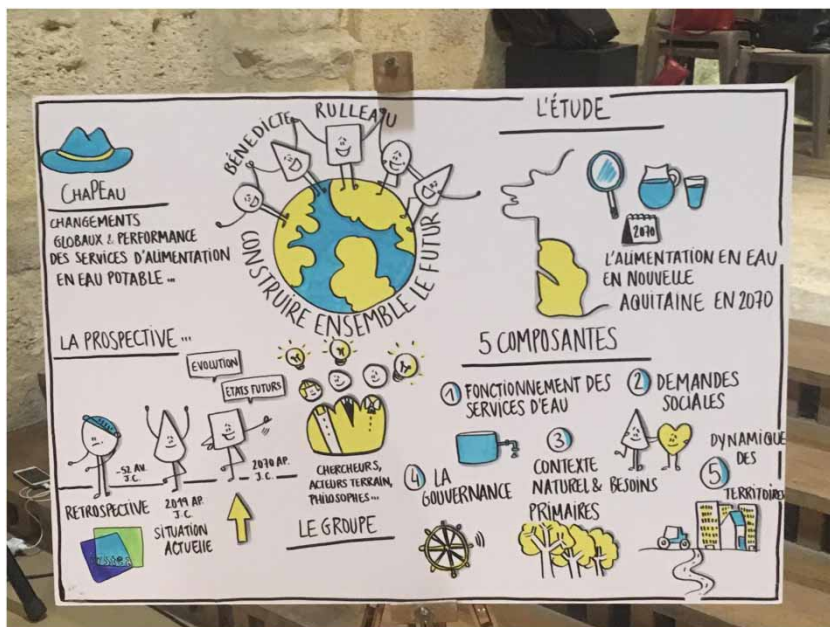 CHAPEAU
CHANGEMENTS
GLOBAUX & PERFORMANCE
DES SERVICES D'ALIMENTATION
EN EAU POTABLE ...
BÉNÉDICTE RULLEAU
CONSTRUIRE ENSEMBLE LE FUTUR
L'ÉTUDE
2070
L'ALIMENTATION EN EAU
EN NOUVELLE
AQUITAINE EN 2070
LA PROSPECTIVE ...
EVOLUTION
ETATS FUTURS
-52 AV.
J.C.
2019 AP.
J.C.
2070 AP.
J.C.
RETROSPECTIVE
SITUATION
ACTUELLE
CHERCHEURS,
ACTEURS TERRAIN,
PHILOSOPHES...
LE GROUPE
5 COMPOSANTES
1 FONCTIONNEMENT DES
SERVICES D'EAU
2 DEMANDES
SOCIALES
3
CONTEXTE
NATUREL & BESOINS
PRIMAIRES
4 LA
GOUVERNANCE
DYNAMIQUE
DES
5
TERRITOIRES